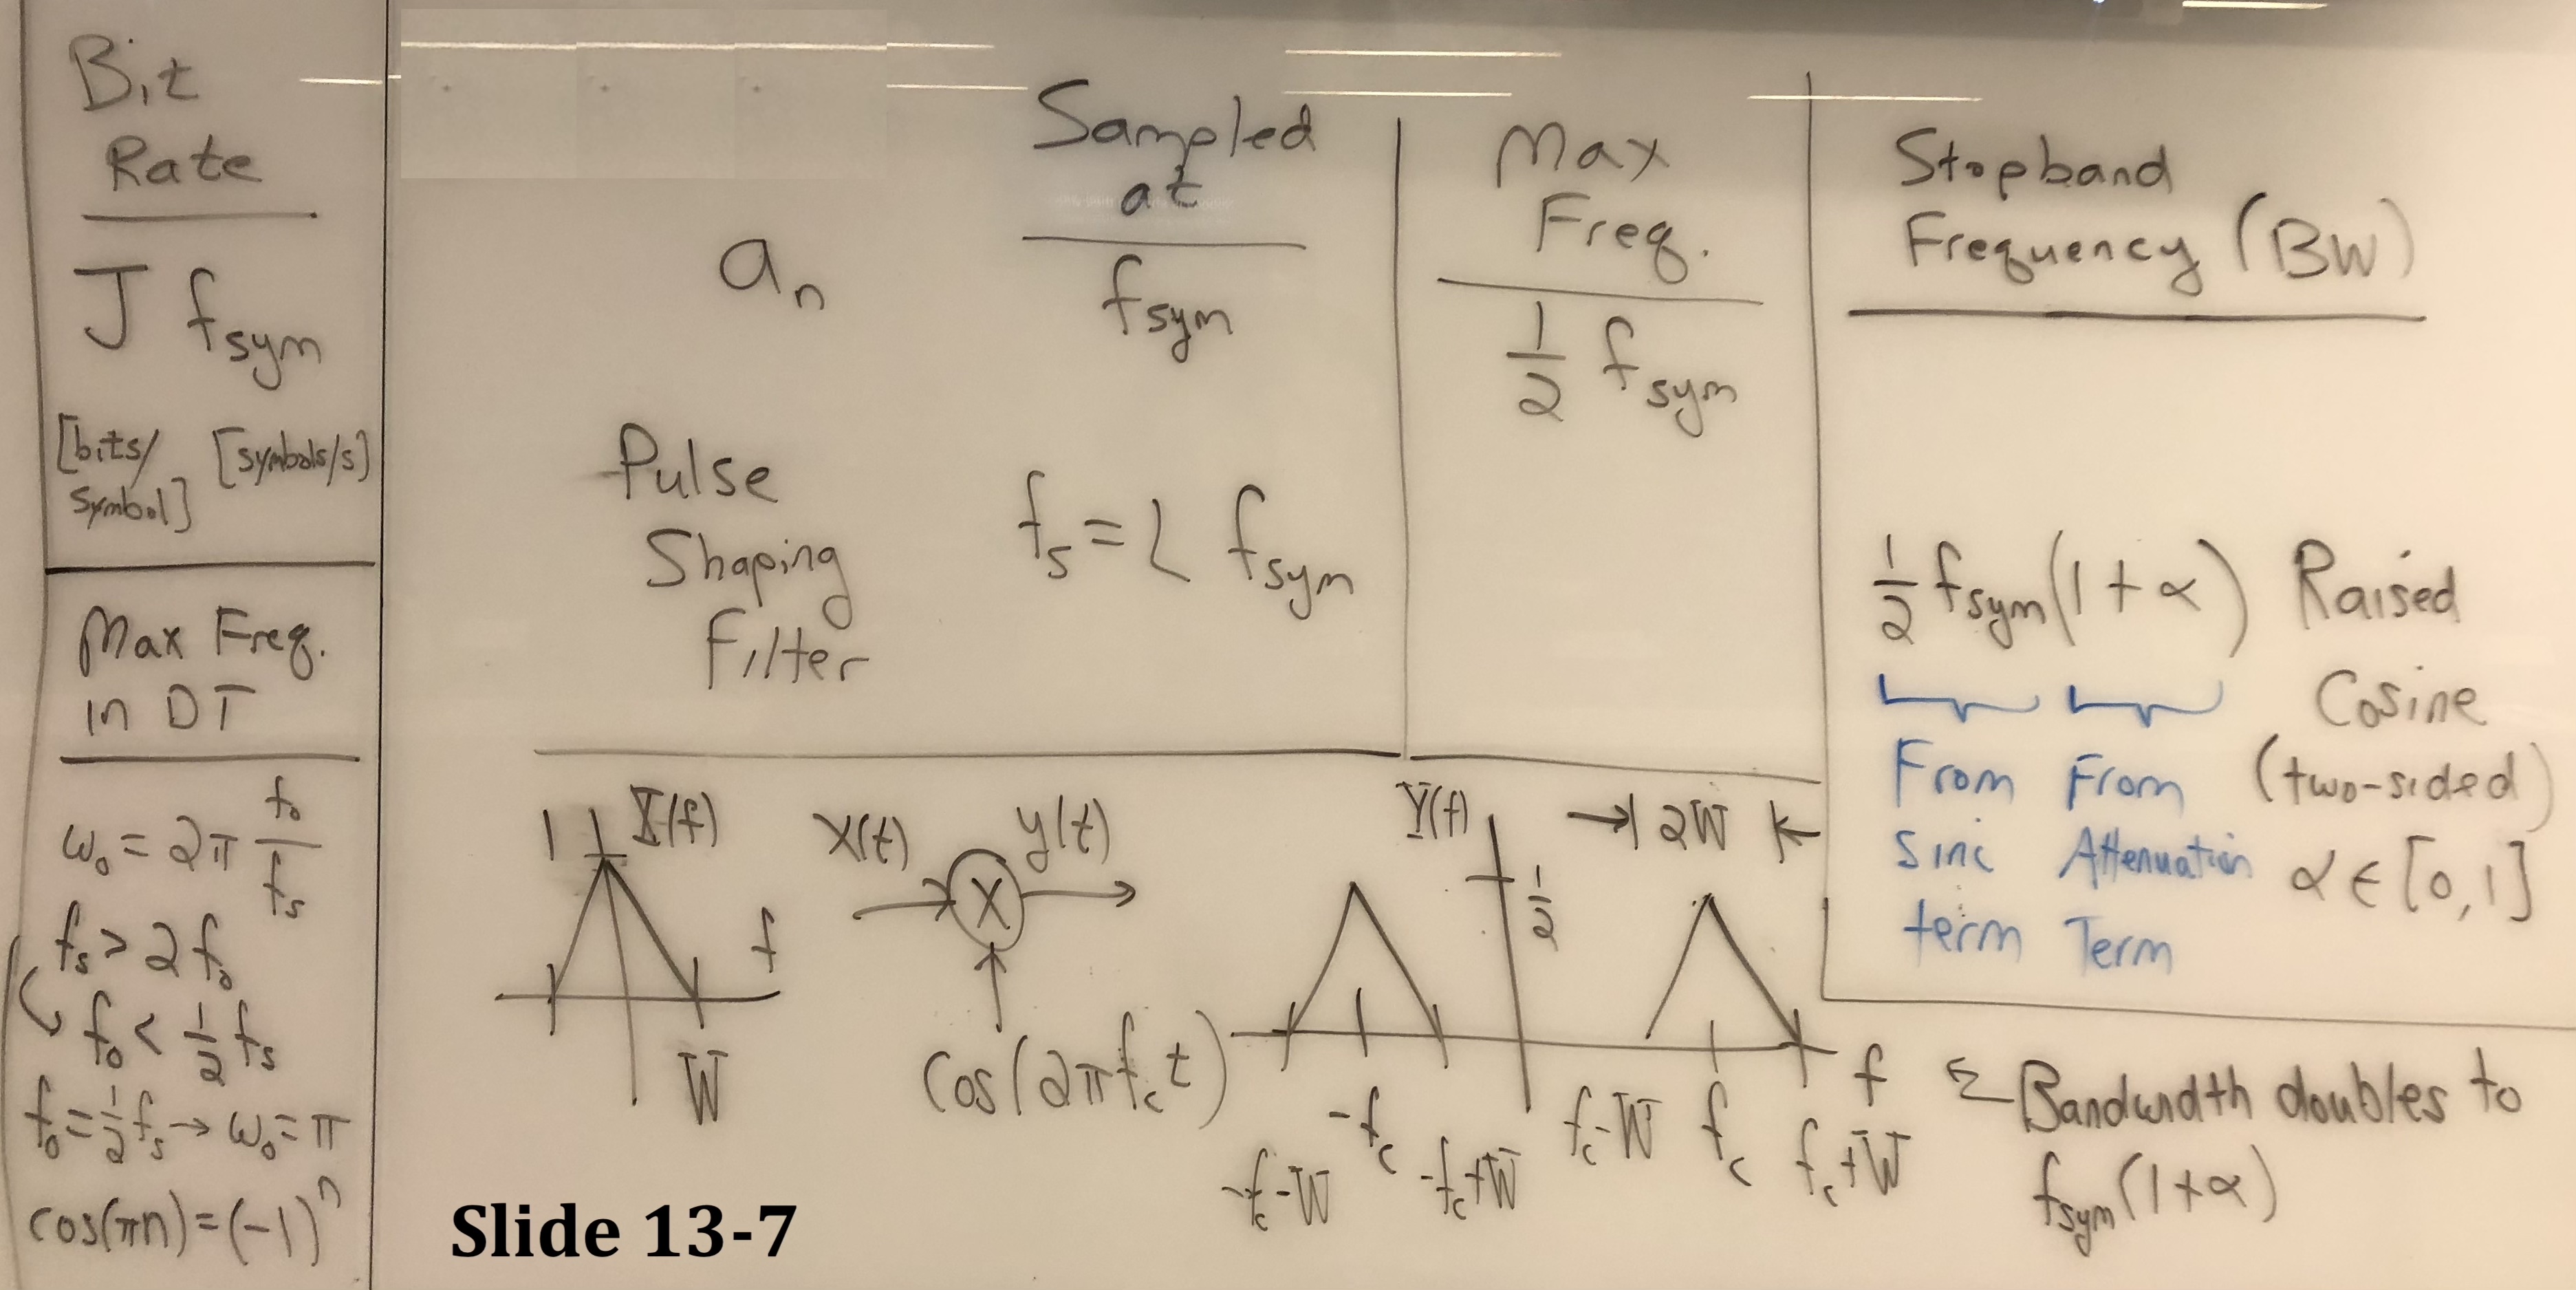 Bit
Rate
J fsym
[bits/symbol] [symbols/s]
Max Freq.
in DT
ω₀ = 2π f₀/fs
fs > 2 f₀
f₀ < 1/2 fs
f₀ = 1/2 fs → ω₀ = π
cos(πn) = (-1)ⁿ
aₙ
Sampled
at
fsym
Pulse
Shaping
Filter
fs = L fsym
Max
Freq.
1/2 fsym
Stopband
Frequency (BW)
1/2 fsym (1 + α) Raised
Cosine
(two-sided)
α ∈ [0,1]
From
sinc
term
From
Attenuation
Term
1 X(f)
f
W
x(t) y(t)
X
cos(2πfc t)
Y(f) 1/2
→| 2W |←
-fc-W -fc -fc+W fc-W fc fc+W f
← Bandwidth doubles to
fsym (1+α)
Slide 13-7